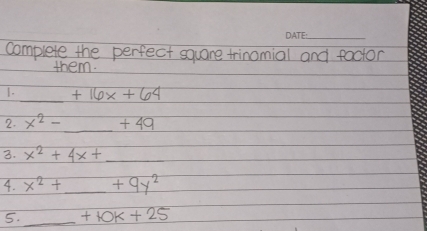 DATE:
Complete the perfect square trinomial and factor
them.
1. ______ + 16x + 64
2. x² - ______ + 49
3. x² + 4x + ______
4. x² + ______ + 9y²
5. ______ + 10k + 25